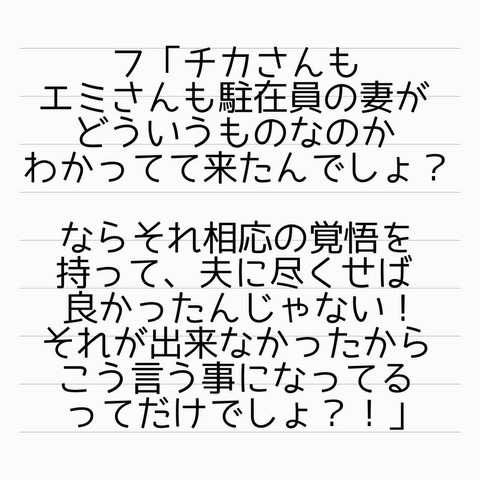 フ「チカさんも
エミさんも駐在員の妻が
どういうものなのか
わかってて来たんでしょ？
ならそれ相応の覚悟を
持って、夫に尽くせば
良かったんじゃない！
それが出来なかったから
こう言う事になってる
ってだけでしょ？！」